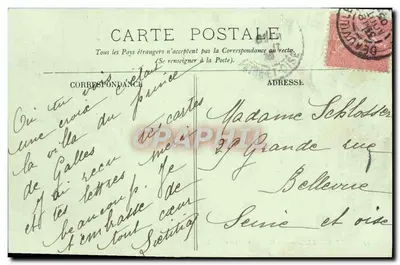 CARTE POSTALE
Tous les Pays étrangers n'acceptent pas la Correspondance au recto.
(Se renseigner à la Poste).
CORRESPONDANCE
Où tu vois
une croix c'était
la villa du prince
de Galles
J'ai reçu tes cartes
et tes lettres merci
beaucoup. Je
t'embrasse de
tout cœur
Laetitia
ADRESSE
Madame Schlosser
29 Grande rue
Bellevue
Seine et oise
CPRPARAMA